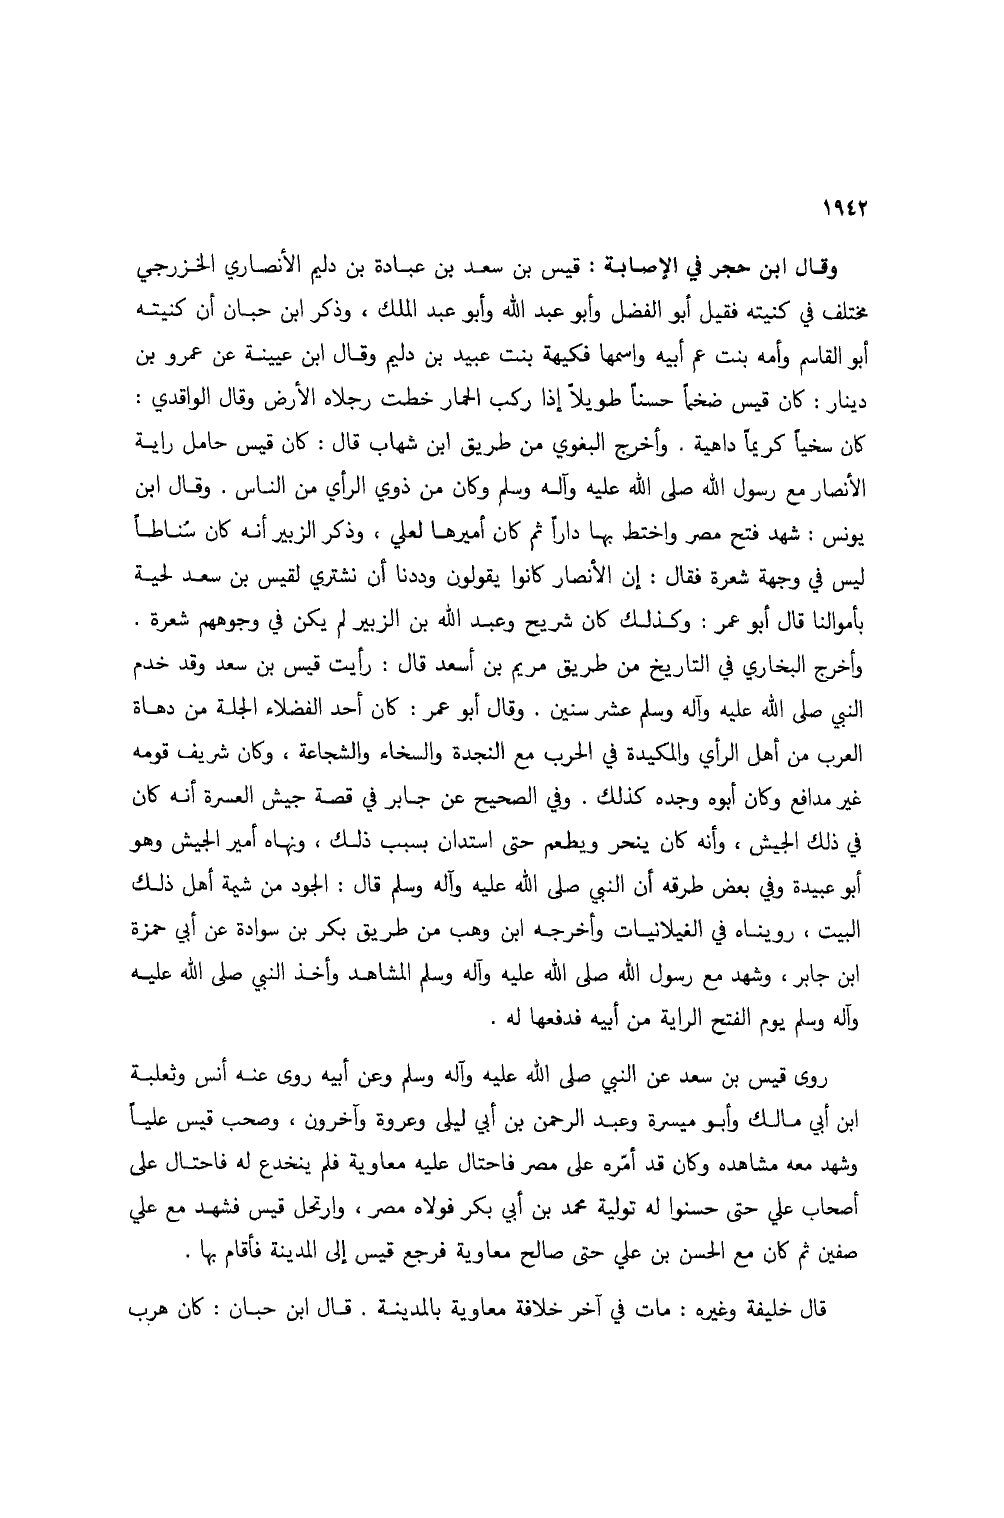 ١٩٤٢
وقال ابن حجر في الإصابة : قيس بن سعد بن عبادة بن دليم الأنصاري الخزرجي
مختلف في كنيته فقيل أبو الفضل وأبو عبد الله وأبو عبد الملك ، وذكر ابن حبان أن كنيته
أبو القاسم وأمه بنت عم أبيه واسمها فكيهة بنت عبيد بن دليم وقال ابن عيينة عن عمرو بن
دينار : كان قيس ضخماً حسناً طويلاً إذا ركب الحمار خطت رجلاه الأرض وقال الواقدي :
كان سخياً كريماً داهية . وأخرج البغوي من طريق ابن شهاب قال : كان قيس حامل راية
الأنصار مع رسول الله صلى الله عليه وآله وسلم وكان من ذوي الرأي من الناس . وقال ابن
يونس : شهد فتح مصر واختط بها داراً ثم كان أميرها لعلي ، وذكر الزبير أنه كان سُناطاً
ليس في وجهة شعرة فقال : إن الأنصار كانوا يقولون وددنا أن نشتري لقيس بن سعد لحية
بأموالنا قال أبو عمر : وكذلك كان شريح وعبد الله بن الزبير لم يكن في وجوههم شعرة .
وأخرج البخاري في التاريخ من طريق مريم بن أسعد قال : رأيت قيس بن سعد وقد خدم
النبي صلى الله عليه وآله وسلم عشر سنين . وقال أبو عمر : كان أحد الفضلاء الجلة من دهاة
العرب من أهل الرأي والمكيدة في الحرب مع النجدة والسخاء والشجاعة ، وكان شريف قومه
غير مدافع وكان أبوه وجده كذلك . وفي الصحيح عن جابر في قصة جيش العسرة أنه كان
في ذلك الجيش ، وأنه كان ينحر ويطعم حتى استدان بسبب ذلك ، ونهاه أمير الجيش وهو
أبو عبيدة وفي بعض طرقه أن النبي صلى الله عليه وآله وسلم قال : الجود من شيمة أهل ذلك
البيت ، رويناه في الغيلانيات وأخرجه ابن وهب من طريق بكر بن سوادة عن أبي حمزة
ابن جابر ، وشهد مع رسول الله صلى الله عليه وآله وسلم المشاهد وأخذ النبي صلى الله عليه
وآله وسلم يوم الفتح الراية من أبيه فدفعها له .
روى قيس بن سعد عن النبي صلى الله عليه وآله وسلم وعن أبيه روى عنه أنس وثعلبة
ابن أبي مالك وأبو ميسرة وعبد الرحمن بن أبي ليلى وعروة وآخرون ، وصحب قيس علياً
وشهد معه مشاهده وكان قد أمّره على مصر فاحتال عليه معاوية فلم ينخدع له فاحتال على
أصحاب علي حتى حسنوا له تولية محمد بن أبي بكر فولاه مصر ، وارتحل قيس فشهد مع علي
صفين ثم كان مع الحسن بن علي حتى صالح معاوية فرجع قيس إلى المدينة فأقام بها .
قال خليفة وغيره : مات في آخر خلافة معاوية بالمدينة . قال ابن حبان : كان هرب